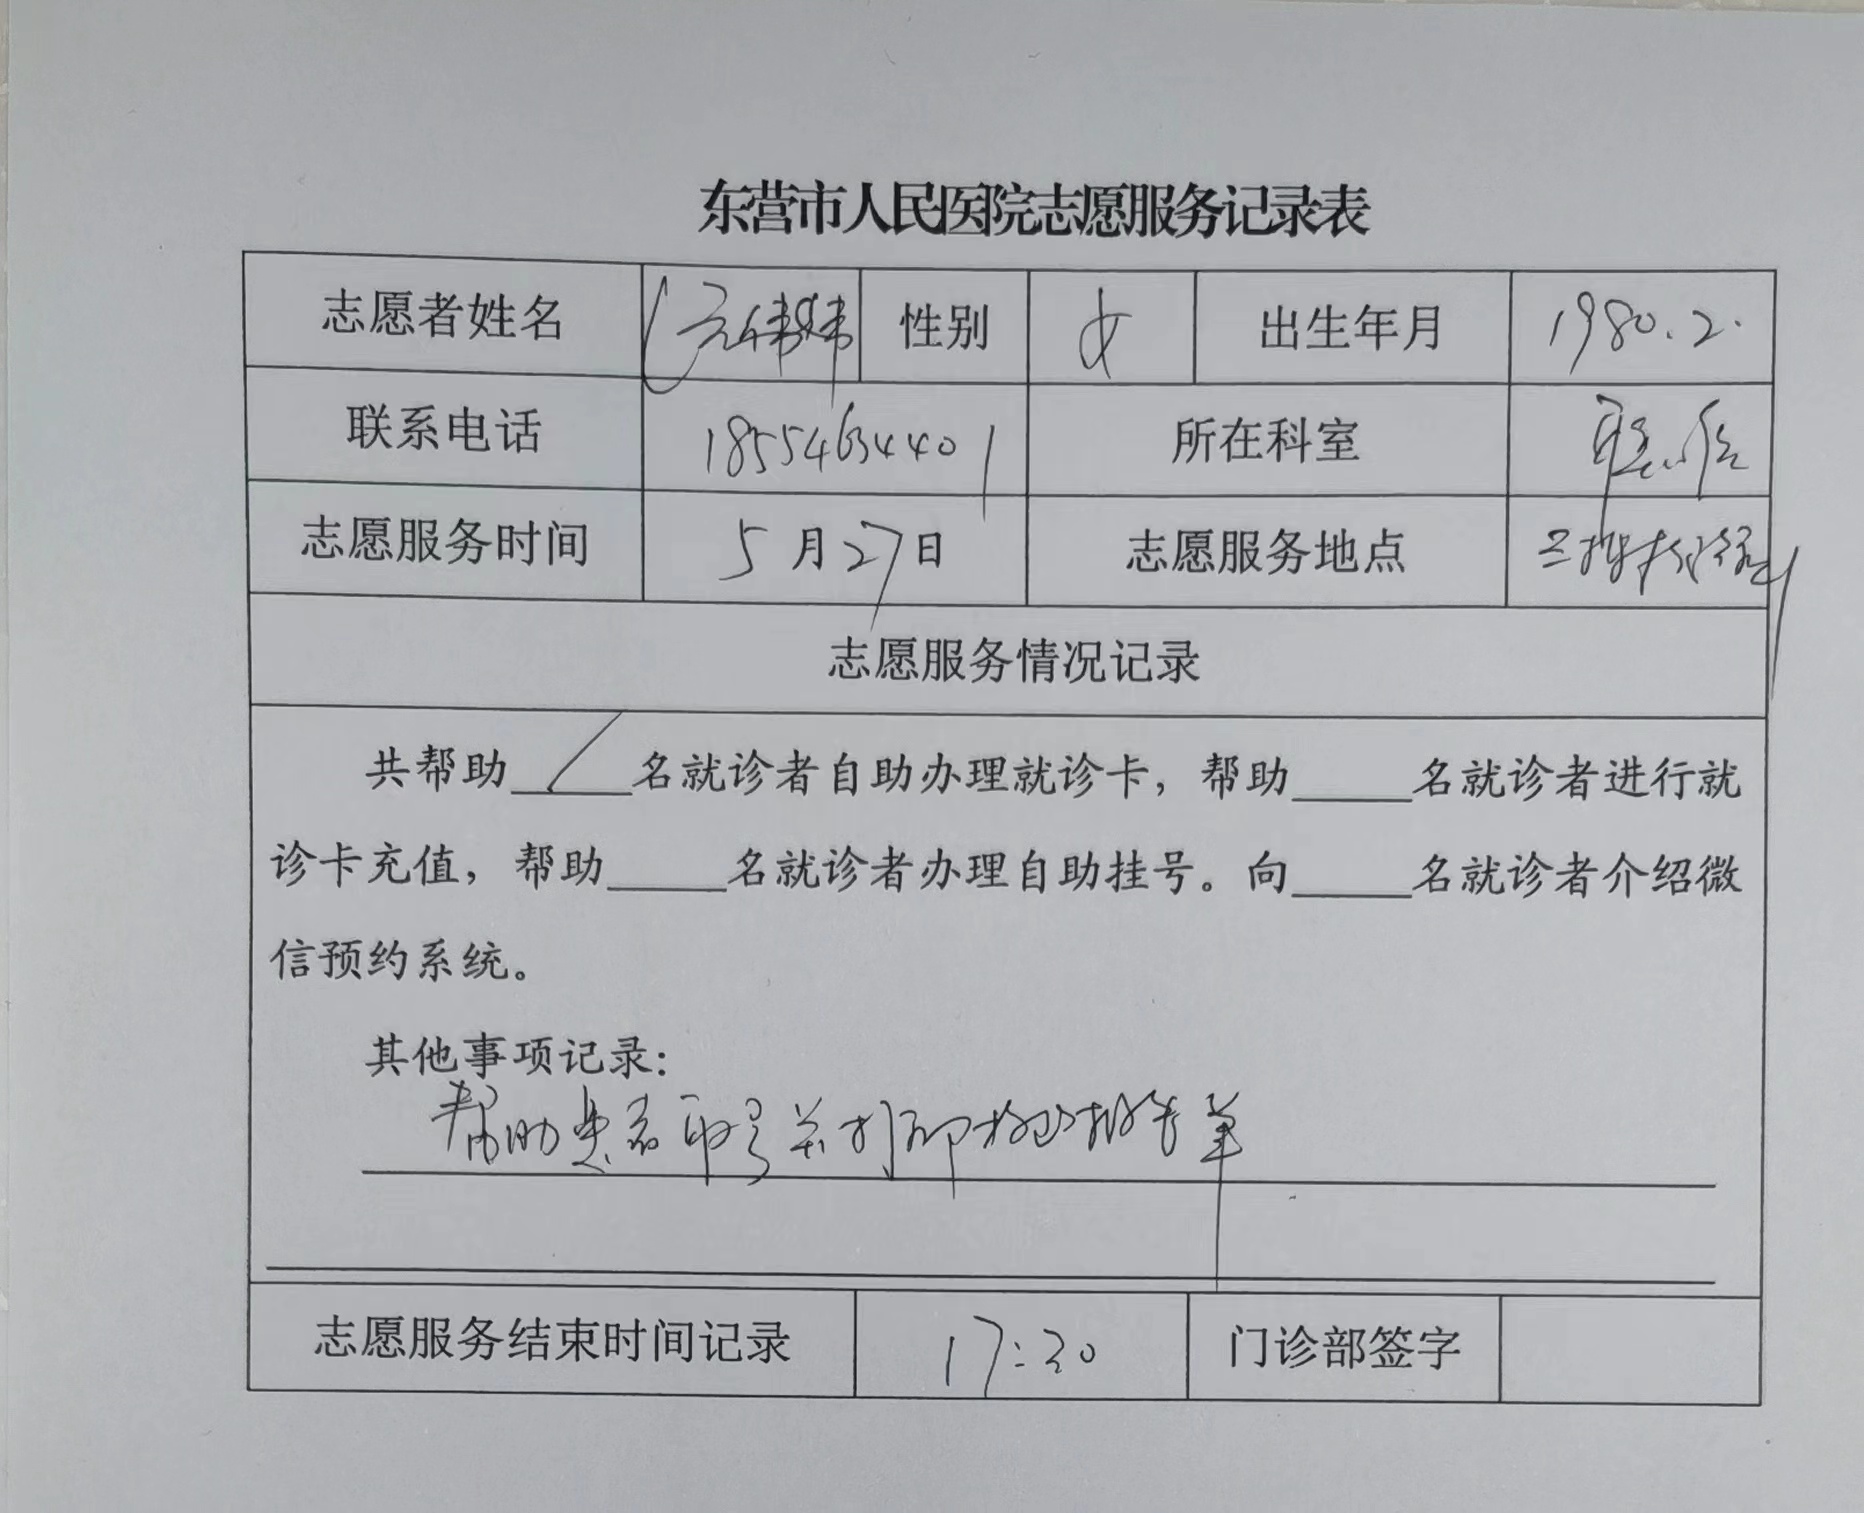 东营市人民医院志愿服务记录表
志愿者姓名 性别 女 出生年月 1980.2.
联系电话 18554634401 所在科室
志愿服务时间 5月27日 志愿服务地点
志愿服务情况记录
共帮助 / 名就诊者自助办理就诊卡，帮助_____名就诊者进行就
诊卡充值，帮助_____名就诊者办理自助挂号。向_____名就诊者介绍微
信预约系统。
其他事项记录：
帮助患者取号并打印检验报告单
志愿服务结束时间记录 17:30 门诊部签字